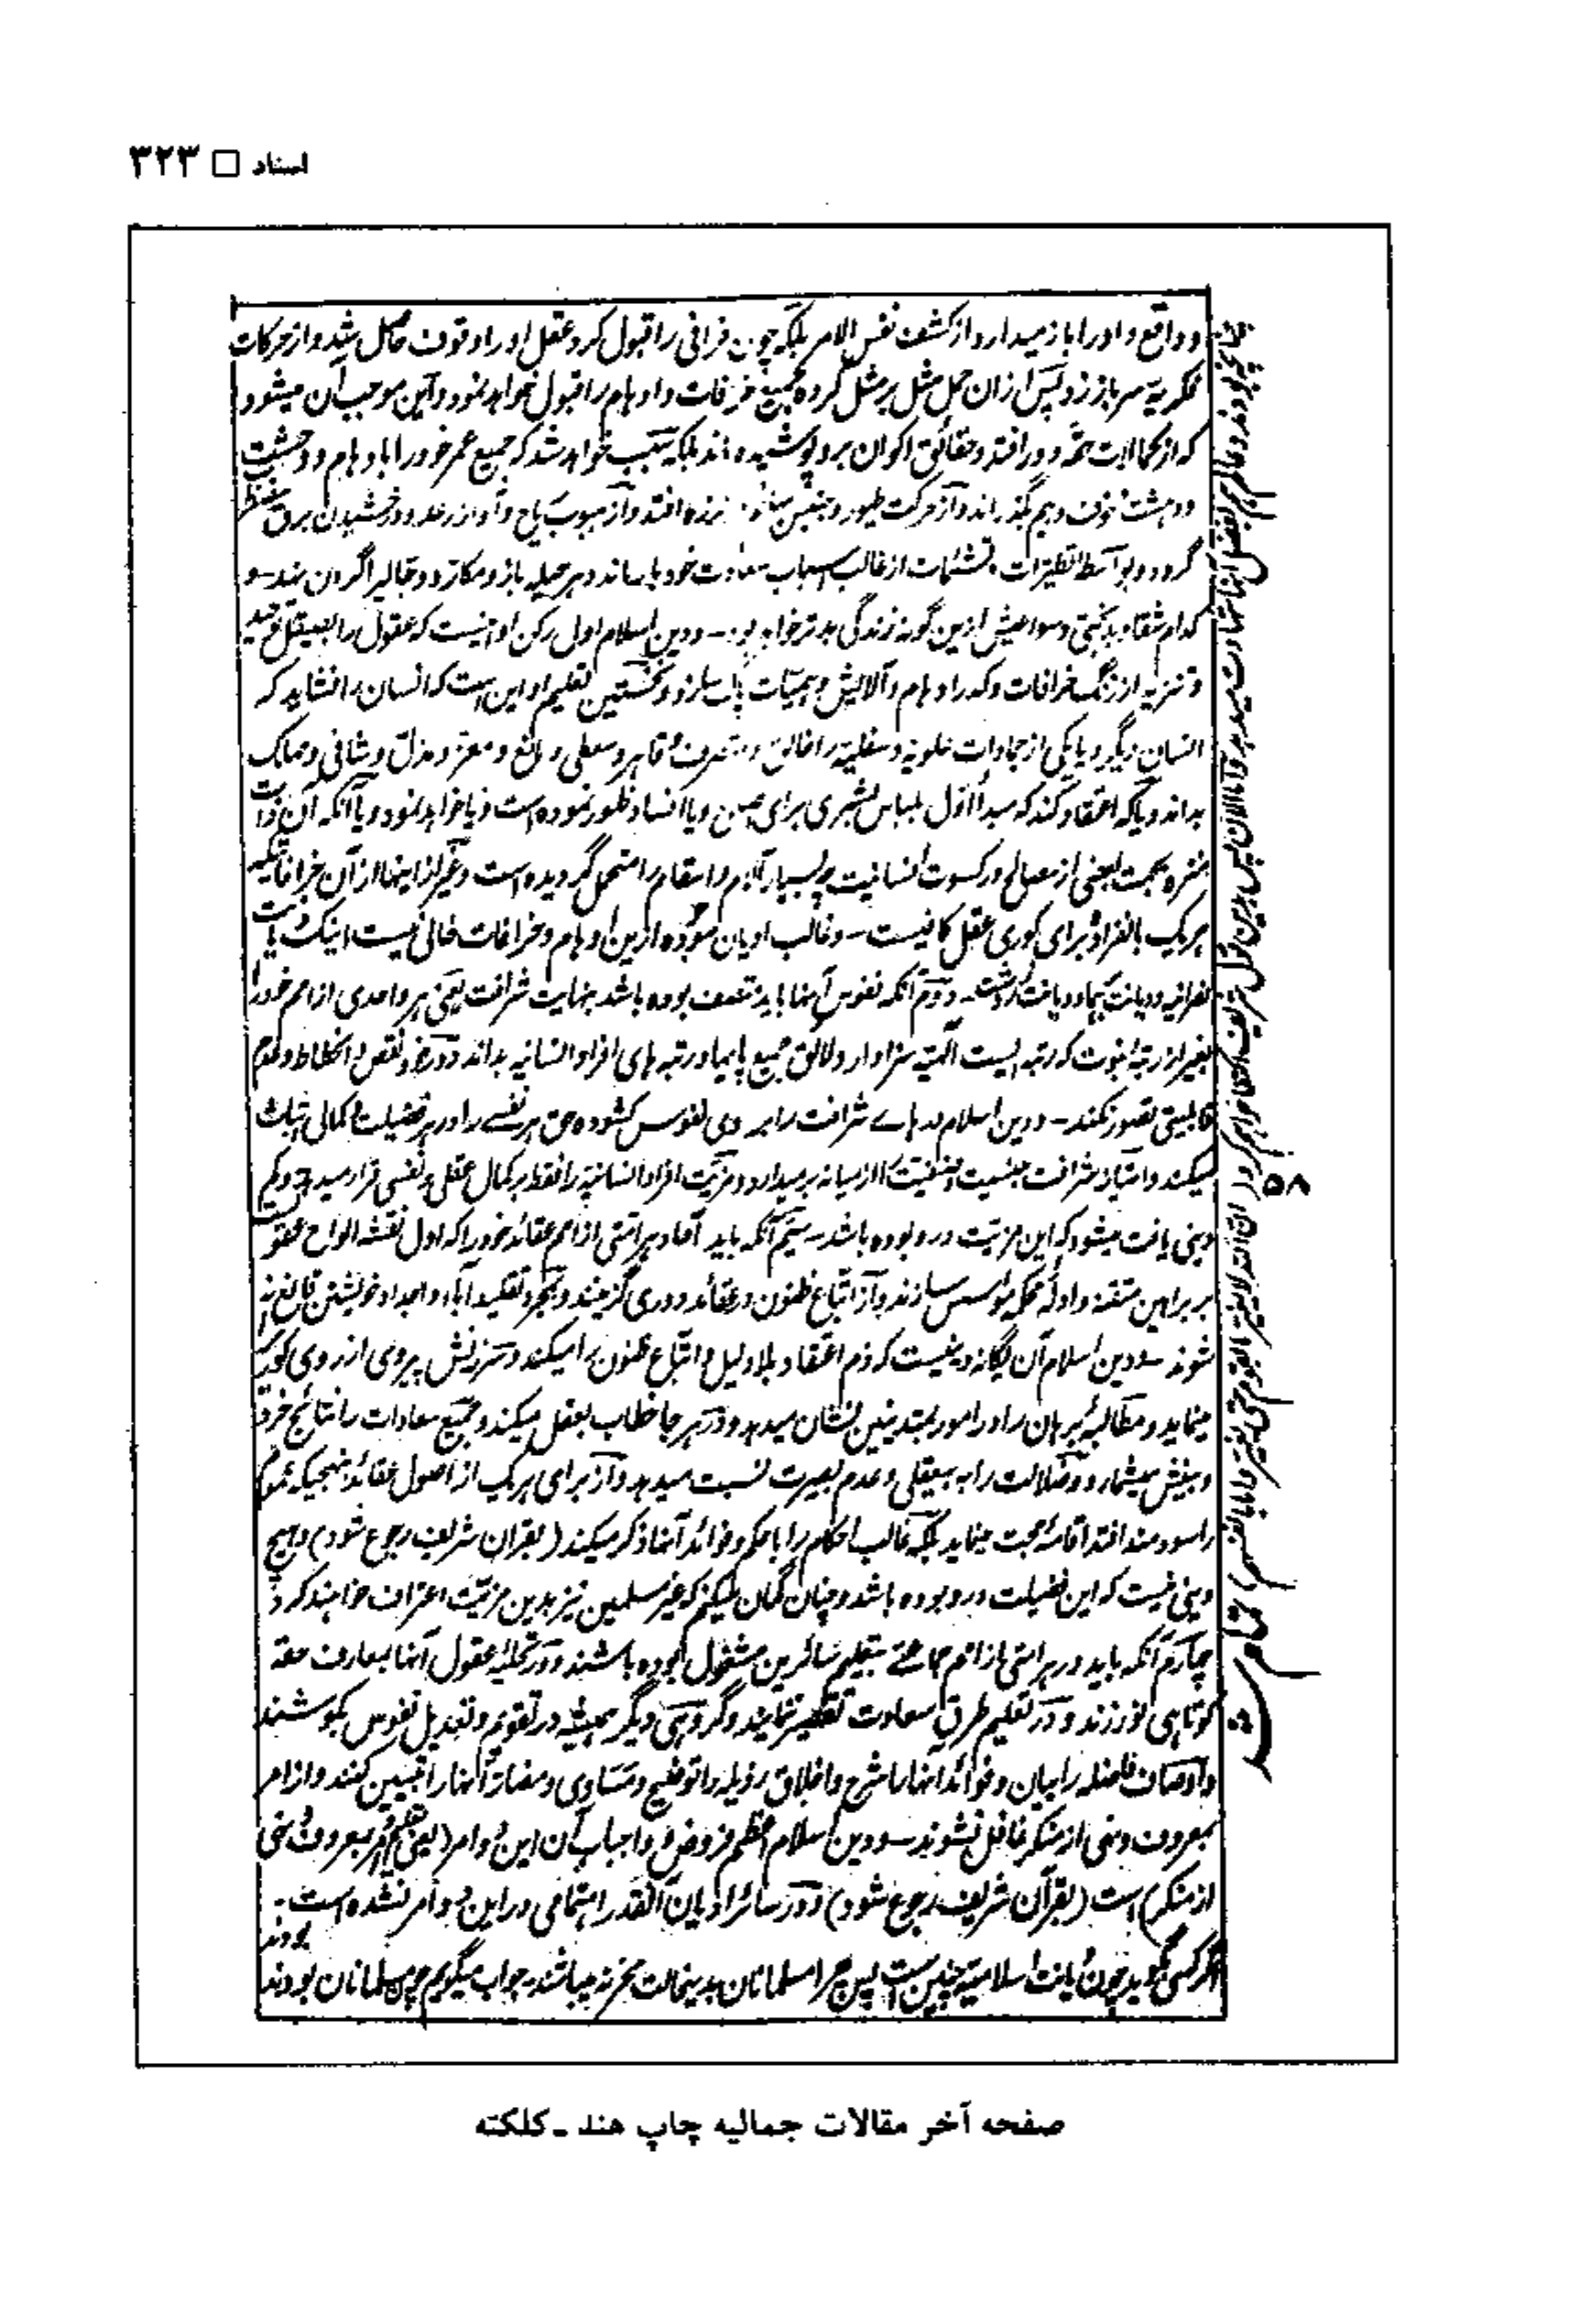 اسناد □ ۳۲۳
و واقع و او را باز میدارد از کشف نفس الامر بلکه چون خرافی را قبول کرد عقل او را وقوف حاصل شد و از حرکات
فکریه سر باز زند و پس از آن حمل مثل بر مثل کرده جمیع خرافات و اوهام را قبول خواهد نمود و این موجب آن میشود
که از کمالات حقه دور افتد و حقائق اکوان برو پوشیده ماند بلکه سبب خواهد شد که جمیع عمر خود را باوهام و وحشت
و دهشت و خوف و بیم بگذراند و از حرکت طیور و جنبش بهائم لرزه افتد و از هبوب ریاح و آواز رعد و درخشیدن برق مضطرب
گردد و بواسطه تطیرات و تشئمات از غالب اسباب سعادت خود باز ماند و بهر حیله باز و مکار و دجالی را گردن نهد - و
کدام شقا و بدبختی و سوء عیش ازین گونه زندگی بدتر خواهد بود - و دین اسلام اول رکن او اینست که عقول را بصیقل توحید
و تنزیه از زنگ خرافات و کدر اوهام و آلایش وهمیات پاک سازد و نخستین تعلیم او این است که انسان را نشاید که
انسان دیگر و یا یکی از جمادات علویه و سفلیه را خالق و متصرف و قاهر و معطی و مانع و معز و مذل و شافی و مهلک
بداند و یا آنکه اعتقاد کند که مبدأ اول بلباس بشری برای اصلاح و یا افساد ظهور نموده است و یا خواهد نمود و یا آنکه آن ذات
منزه بجهت بعضی از مصالح در کسوت انسانیت چه بسیار آلام و اسقام را متحمل گردیده است و غیر از اینها از آن خرافاتیکه
هر یک بانفراده برای کوری عقل کافیست - و غالب ادیان موجوده ازین اوهام و خرافات خالی نیست اینک دیانت
نصرانیه و دیانت برهما و دیانت زردشت - دوم آنکه نفوس آنها باید متصف بوده باشد بنهایت شرافت یعنی هر واحدی از امم خود را
بغیر از رتبه نبوت که رتبه ایست الهیه سزاوار و لائق جمیع پایها و رتبه های افراد انسانیه بداند و در خود نقص و انحطاط و عدم
قابلیتی تصور نکند - و دین اسلام درهای شرافت را بر روی نفوس کشوده حق هر نفسی را در هر فضیلت و کمالی اثبات
میکند و امتیاز شرافت جنسیت و صنفیت را از میانه برمیدارد و مزیت افراد انسانیه را فقط بر کمال عقلی و نفسی قرار میدهد و کم
دینی یافت میشود که این مزیت درو بوده باشد - سیم آنکه باید آحاد هر امتی از امم عقائد خود را که اول نقشه الواح عقول
بر براهین متقنه و ادله محکمه مؤسس سازند و از اتباع ظنون در عقائد دوری گزینند و بمجرد تقلید آباء و اجداد خویشتن قانع نه
شوند - و دین اسلام آن یگانه دینیست که ذم اعتقاد بلا دلیل و اتباع ظنون را میکند و سرزنش پیروی از روی کوری
مینماید و مطالبه برهان را در امور بمتدینین نشان میدهد و در هر جا خطاب بعقل میکند و جمیع سعادات را نتائج خرد
و بینش میشمارد و ضلالت را به بیعقلی و عدم بصیرت نسبت میدهد و از برای هر یک از اصول عقائد بنهجیکه عموم
را سودمند افتد اقامه حجت مینماید بلکه غالب احکام را با حکم و فوائد آنها ذکر میکند (بقرآن شریف رجوع شود) و هیچ
دینی نیست که این فضیلت درو بوده باشد و چنان گمان میکنم که غیر مسلمین نیز بدین مزیت اعتراف خواهند کرد
چهارم آنکه باید در هر امتی از امم جماعتی بتعلیم سائرین مشغول بوده باشند و در تحلیه عقول آنها بمعارف حقه
کوتاهی نورزند و در تعلیم طرق سعادت تقصیر ننمایند و گروهی دیگر همیشه در تقویم و تعدیل نفوس بکوشند
و اوصاف فاضله را بیان و فوائد آنها را شرح و اخلاق رذیله را توضیح و مساوی و مضار آنها را تبیین کنند و از امر
بمعروف و نهی از منکر غافل نشوند - و دین اسلام اعظم فروض و واجبات آن این دو امر (یعنی تعلیم و امر بمعروف و نهی
از منکر) است (بقرآن شریف رجوع شود) و در سائر ادیان آنقدر اهتمامی در این دو امر نشده است -
اگر کسی بگوید چون دیانت اسلامیه چنین است پس چرا مسلمانان بدینحالت محزنه میباشند جواب میگویم چون مسلمانان بودند بودند
چنانچه بودند و عالم هم بفضل آنها شهادت میدهد و اما الآن پس بدین قول شریف اکتفا خواهم کرد ان الله لا یغیر ما بقوم حتی یغیروا ما بانفسهم
۵۸
صفحه آخر مقالات جمالیه چاپ هند ـ کلکته